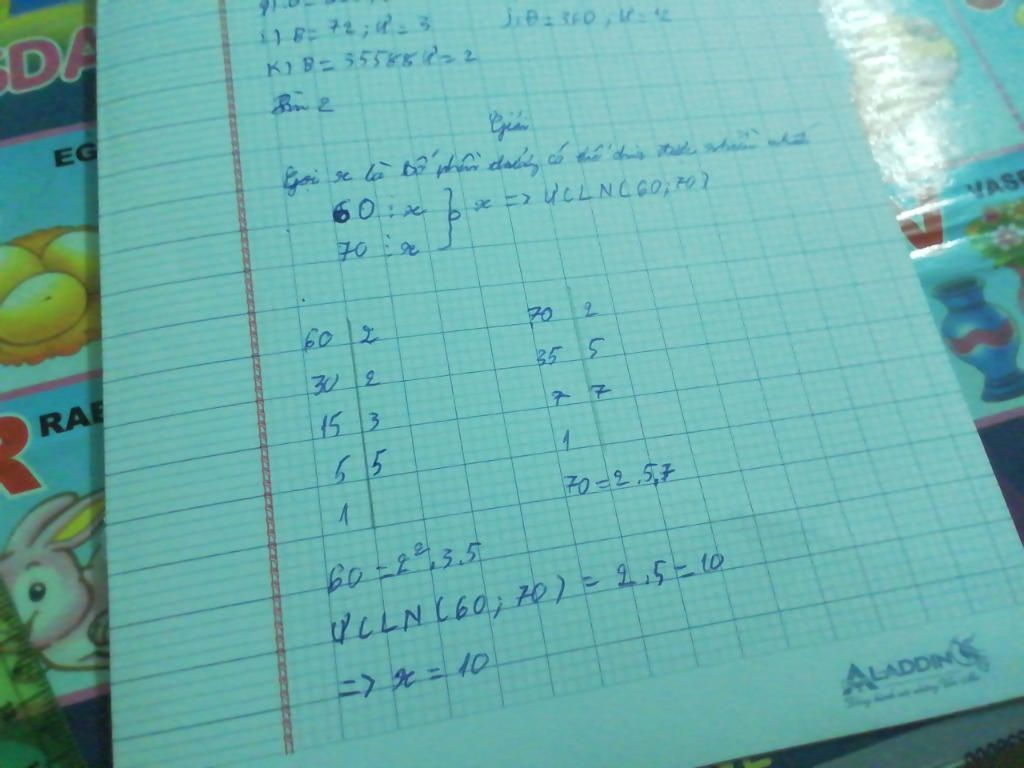 SDA
EG
RAB
R
VASE
i) B = 72 ; Ư = 3
j) B = 360 ; Ư = 12
k) B = 35588 Ư = 2
Bài 2
Giải
Gọi x là số phần thưởng có thể chia được nhiều nhất
60 ⋮ x } x => ƯCLN(60; 70)
70 ⋮ x
60 | 2
30 | 2
15 | 3
5 | 5
1
70 | 2
35 | 5
7 | 7
1
70 = 2.5.7
60 = 2².3.5
ƯCLN(60; 70) = 2.5 = 10
=> x = 10
ALADDIN